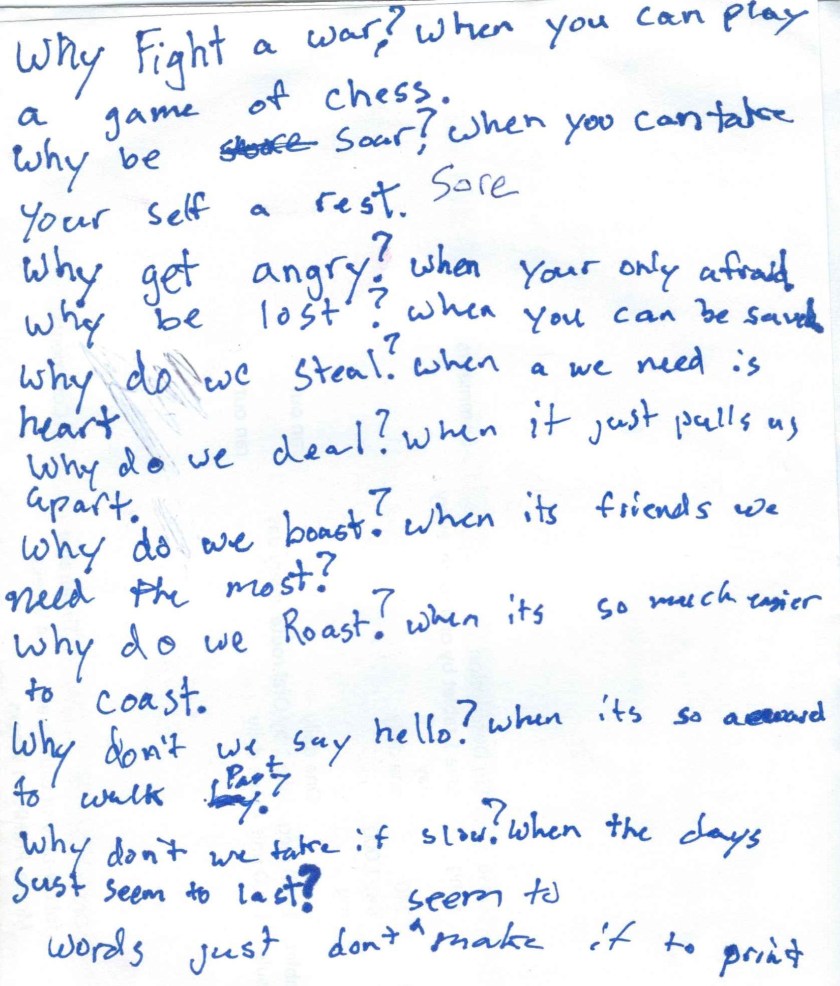 Why Fight a war? When you can play
a game of chess.
Why be soar? when you can take
your self a rest. Sore
Why get angry? when your only afraid
why be lost? when you can be saved
Why do we steal? when a we need is
heart
Why do we deal? when it just pulls us
apart.
Why do we boast? when its friends we
need the most?
Why do we Roast? when its so much easier
to coast.
Why don't we say hello? when its so
to walk Past?
Why don't we take it slow? When the days
Just seem to last?
seem to
words just dont ^ make it to print